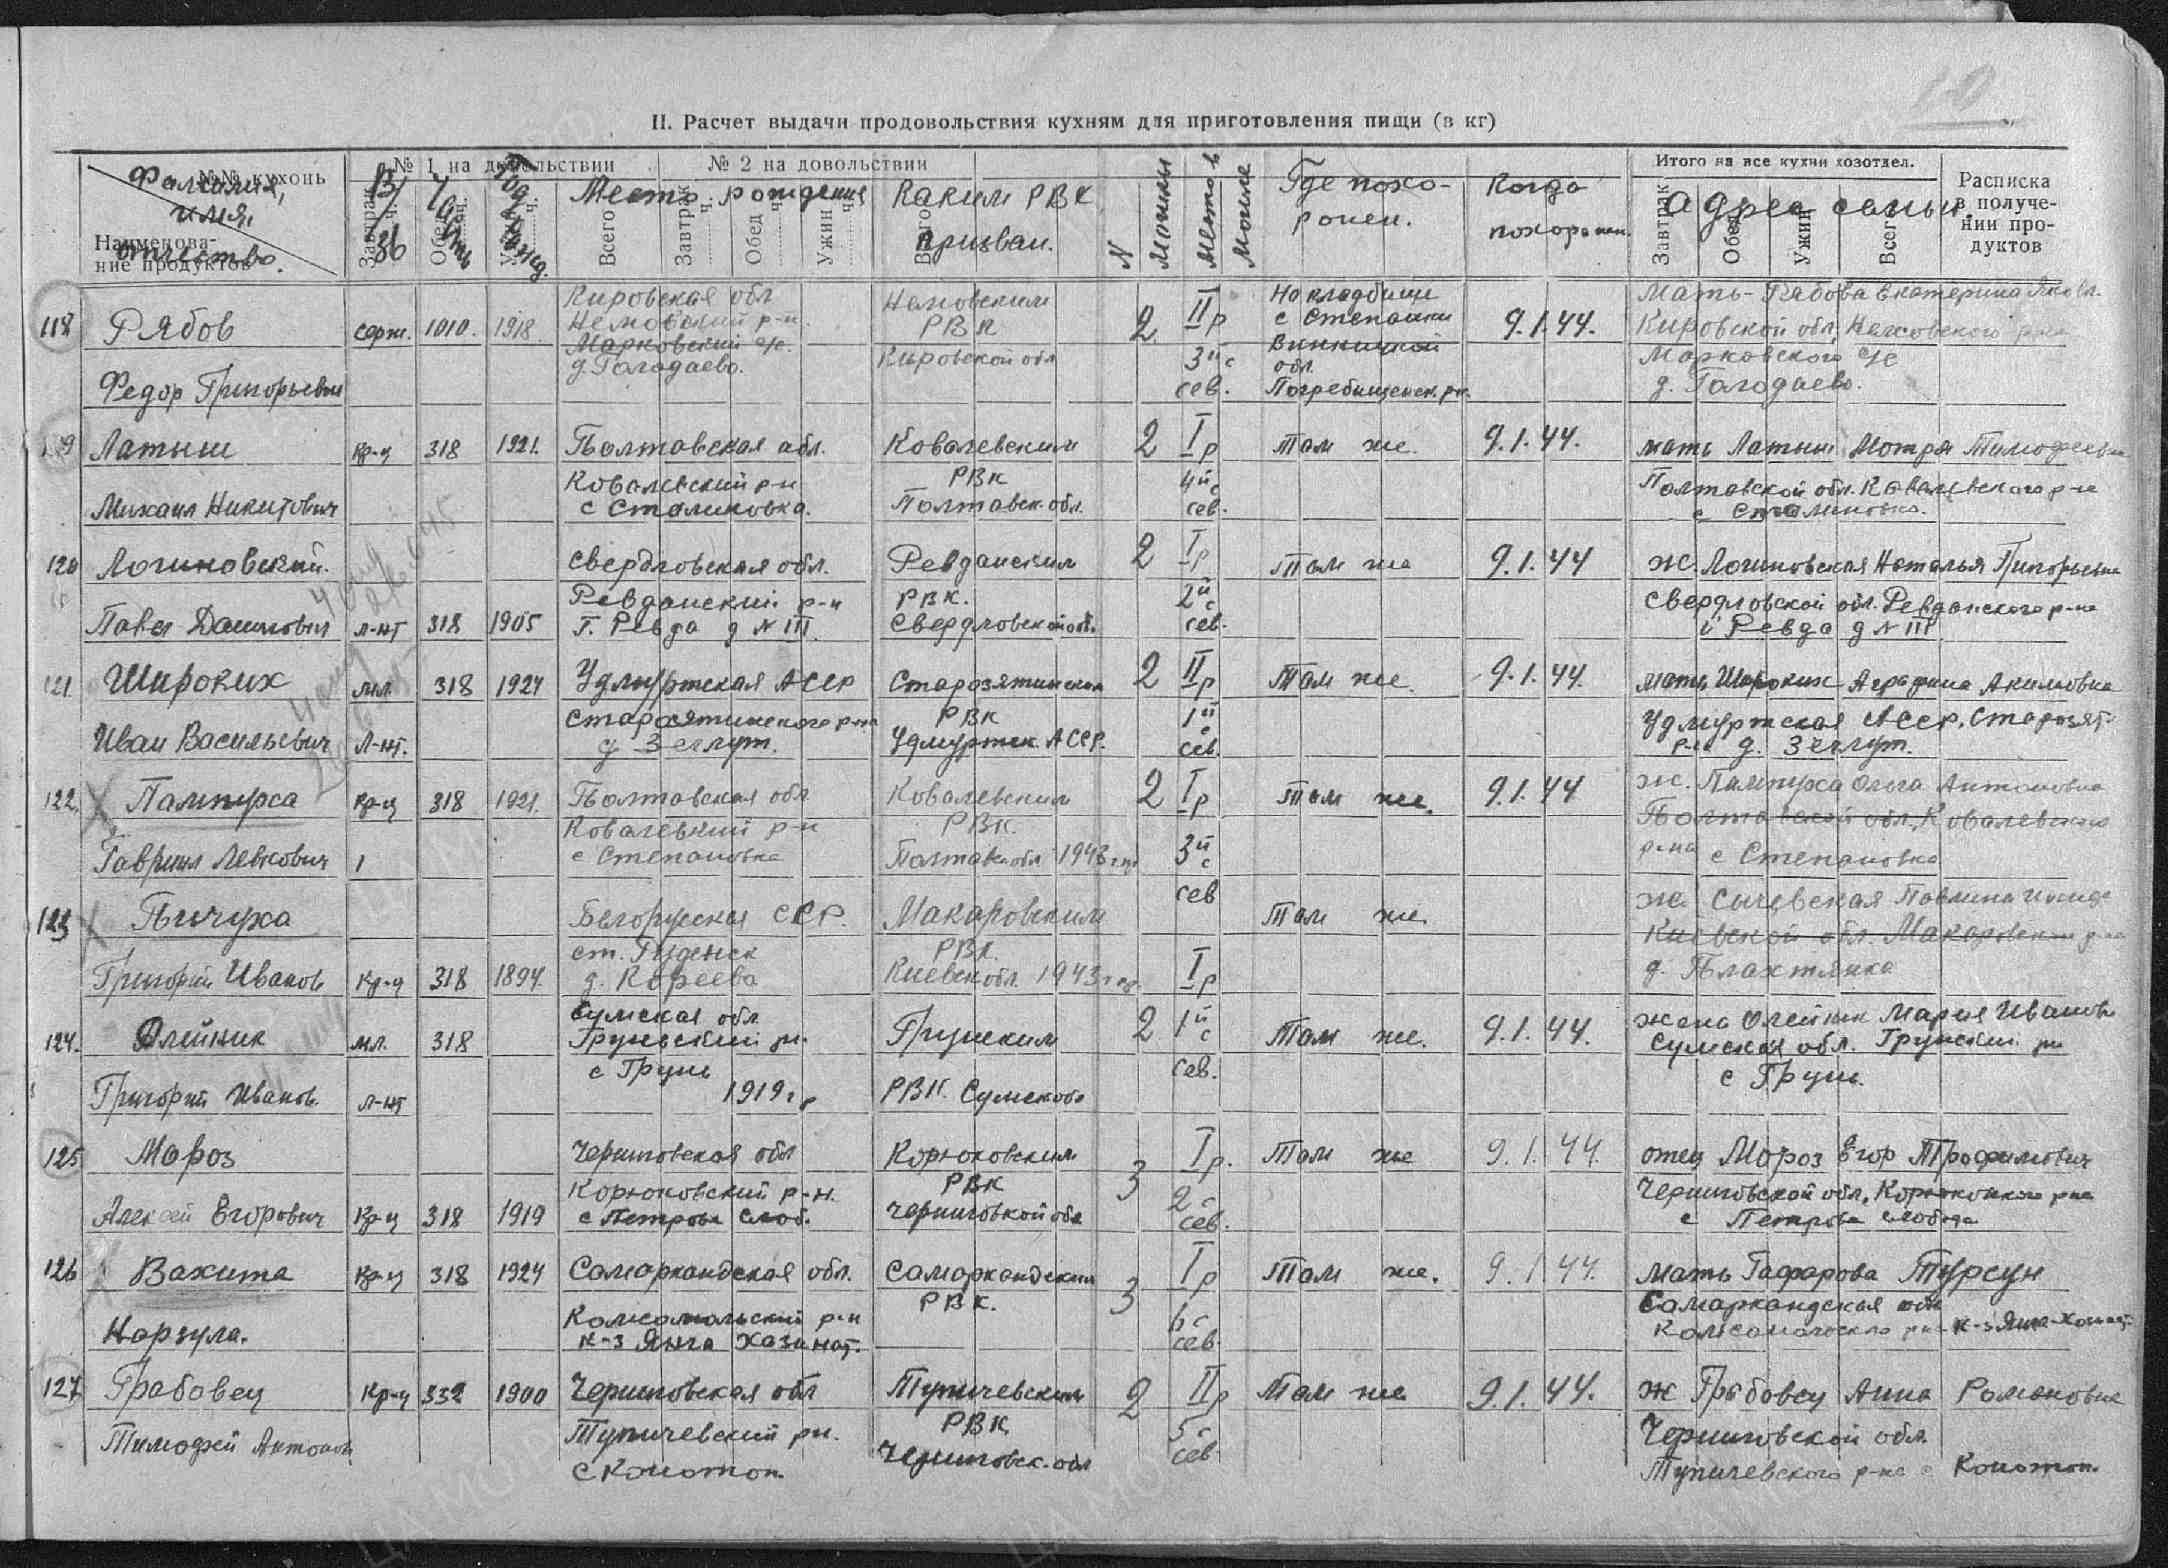 10
II. Расчет выдачи продовольствия кухням для приготовления пищи (в кг)
№№ кухонь
Наименование продуктов
№ 1 на довольствии
№ 2 на довольствии
Итого на все кухни хозотдел.
Расписка в получении продуктов
Завтрак Обед Ужин Всего Завтрак Обед Ужин Всего
Завтрак Обед Ужин Всего
Фамилия, имя, отчество.
В/зв
Часть
Год рожд.
Место рождения
Каким РВК призван.
N могилы
Место в могиле
Где похоронен.
Когда похоронен.
Адрес семьи.
118 Рябов серж. 1010. 1918
Федор Григорьевич
Кировская обл
р-н
д. Голодаево.
РВК
Кировской обл
2 II р
3й с
сев.
На кладбище
с Степанки
Винницкой
обл.
Погребищенск. рн.
9.1.44.
Мать - Рябова Екатерина Яковл.
Кировской обл,
Марковского с/с
д. Голодаево.
Латыш кр-ц 318 1921.
Михаил Никитович
Полтавская обл.
Ковалевский р-н
с Сталиновка.
Ковалевским
РВК
Полтавск. обл.
2 I р
4й с
сев.
Там же.
9.1.44.
мать Латыш Мотря Тимофеевна
Полтавской обл. Ковалевского р-на
с Сталиновка.
120 Логиновский.
Павел Данилович л-нт 318 1905
Свердловская обл.
Ревданский р-н
г. Ревда д N III.
Ревданским
РВК.
Свердловской обл.
2 I р
2й с
сев.
Там же
9.1.44
Ж. Логиновская Наталья Григорьевна
Свердловской обл. Ревданского р-на
г Ревда д N III
121 Широких мл. 318 1924
Иван Васильевич л-нт.
Удмуртская АССР
д Зеглут.
РВК
Удмуртск АССР.
2 II р
1й с
сев.
Там же.
9.1.44.
мать Широких Акимовна
Удмуртская АССР. Старозят.
р-н д. Зеглут.
122. Пампуха кр-ц 318 1921.
Гавриил Левкович
Полтавская обл
Ковалевский р-н
с Степановка
Ковалевским
РВК.
Полтавск обл 1943 г
2 I р
3й с
сев
Там же.
9.1.44
ж. Пампуха Ольга Антоновна
Полтавской обл, Ковалевского
р-на с Степановка
123 Пичуха
Григорий Иванов. Кр-ц 318 1894.
Белорусская ССР.
ст. Руденск
д. Кореева
Макаровским
РВК.
Киевск обл. 1943 г
I р
Там же.
ж. Сычевская Павлина
Киевской обл. Макаровский р-на
д. Плахтянка
124. Олейник мл. 318
Григорий Иванов. л-нт
Сумская обл
Груньский рн.
с Грунь
1919 г р
Грунским
РВК. Сумской
2 1й с
сев.
Там же.
9.1.44.
жена Олейник Мария Иванов.
Сумская обл. Грунский рн
с Грунь.
125 Мороз
Алексей Егорович Кр-ц 318 1919
Черниговская обл
Корюковский р-н.
с Петрова Слоб.
Корюковским
РВК
Черниговской обл
3 I р.
2 с
сев.
Там же
9.1.44.
отец Мороз Егор Трофимович
Черниговской обл, Корюковского рна
с Петрова слобода
126 Вахита Кр-ц 318 1924
Норзула.
Самаркандская обл.
Комсомольский р-н
к-з Янга Хазинат.
Самаркандским
РВК.
3 I р
6 с
сев.
Там же.
9.1.44.
Мать Гафарова Турсун
Самаркандская обл
к-з Янга-
127 Грабовец Кр-ц 332 1900
Тимофей Антонов
Черниговская обл
Тупичевский рн.
с Конотоп.
Тупичевским
РВК
Черниговск. обл
2 II р
5 с
сев
Там же
9.1.44.
ж Грабовец Анна Романовна
Черниговской обл.
Тупичевского р-на с Конотоп.